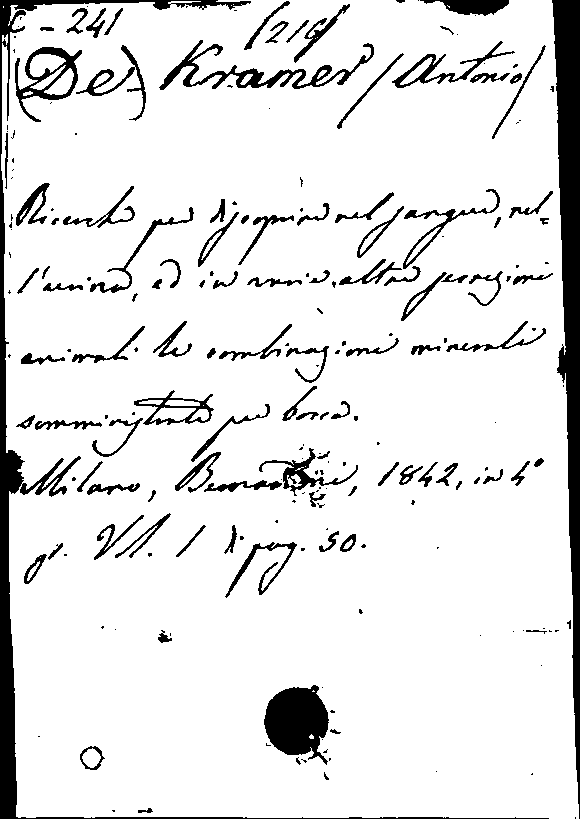 C - 241 (216)
(De) Kramer (Antonio)
Ricerche per discoprire nel sangue, nel-
l'urina, ed in varie altre secrezioni
animali le combinazioni minerali
somministrate per bocca.
Milano, Bernardoni, 1842, in 4°
gr. Vol. 1 di pag. 50.